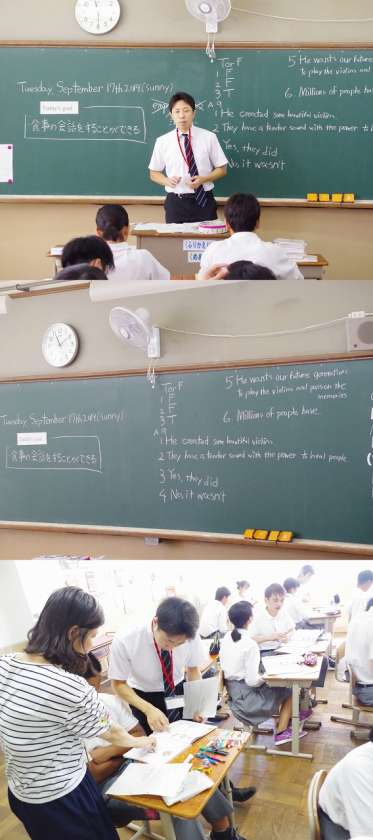 Tuesday September 17th 2019 (sunny)
Today's goal
食事の会話をすることができる
T or F
1 F
2 F
3 T
A
1
2 They have a tender sound with the power to
Yes, they did
No, it wasn't
5 He wants our future
to play the violins and
6. Millions of people have
Tuesday September 17th 2019 (sunny)
食事の会話をすることができる
T or F
1 F
2 F
3 T
A
1 He created some beautiful violins.
2 They have a tender sound with the power to heal people
3 Yes, they did
4 No, it wasn't
5 He wants our future generations
to play the violins and pass on the
memories
6. Millions of people have